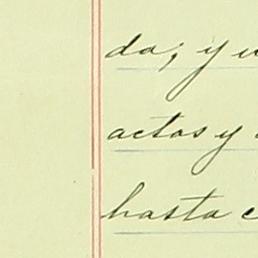 da; y
actos y
hasta